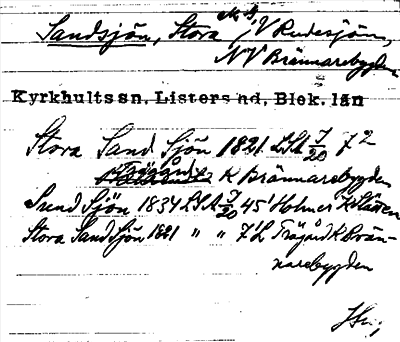 Sandsjön, Stora s.å., V Rudesjön,
NV Brännarebygden
Kyrkhults sn, Listers hd, Blek. län
Stora Sand Sjön 1821 LSA J/20 7²
Träjård K Brännarebygden
Sund Sjön 1834 LSA J/20 45¹ Holmer K
Stora Sand Sjön 1821 " " 7¹ L Träjård K Brän-
narebygden